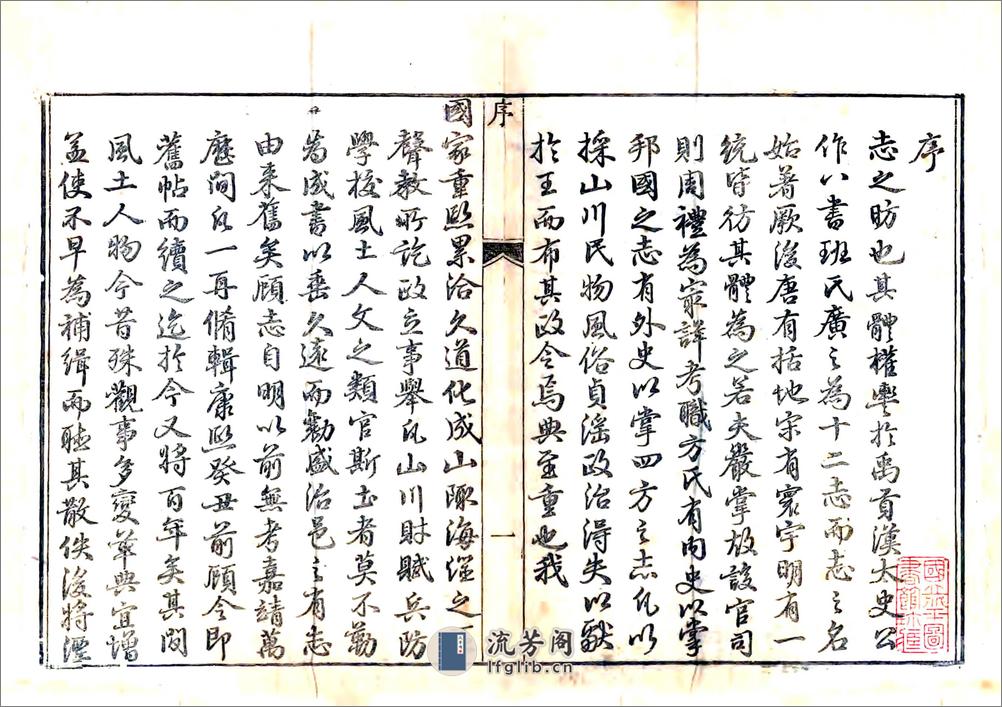 序
志之昉也其體權輿於禹貢漢太史公
作八書班氏廣之為十二志而志之名
始著厥後唐有括地宋有寰宇明有一
統皆彷其體為之若夫嚴掌故設官司
則周禮為最詳考職方氏有內史以掌
邦國之志有外史以掌四方之志凡以
採山川民物風俗貞淫政治得失以獻
於王而布其政令焉典至重也我
序
一
國家重熙累洽久道化成山陬海澨之
聲教所訖政立事舉凡山川財賦兵防
學校風土人文之類官斯土者莫不勤
為成書以垂久遠而勷盛治邑之有志
由來舊矣顧志自明以前無考嘉靖萬
歷間凡一再脩輯康熙癸丑前顧令即
舊帖而續之迄於今又將百年矣其間
風土人物今昔殊觀事多變革典宜增
益使不早為補緝而聽其散佚後將湮
流芳阁
lfglib.cn